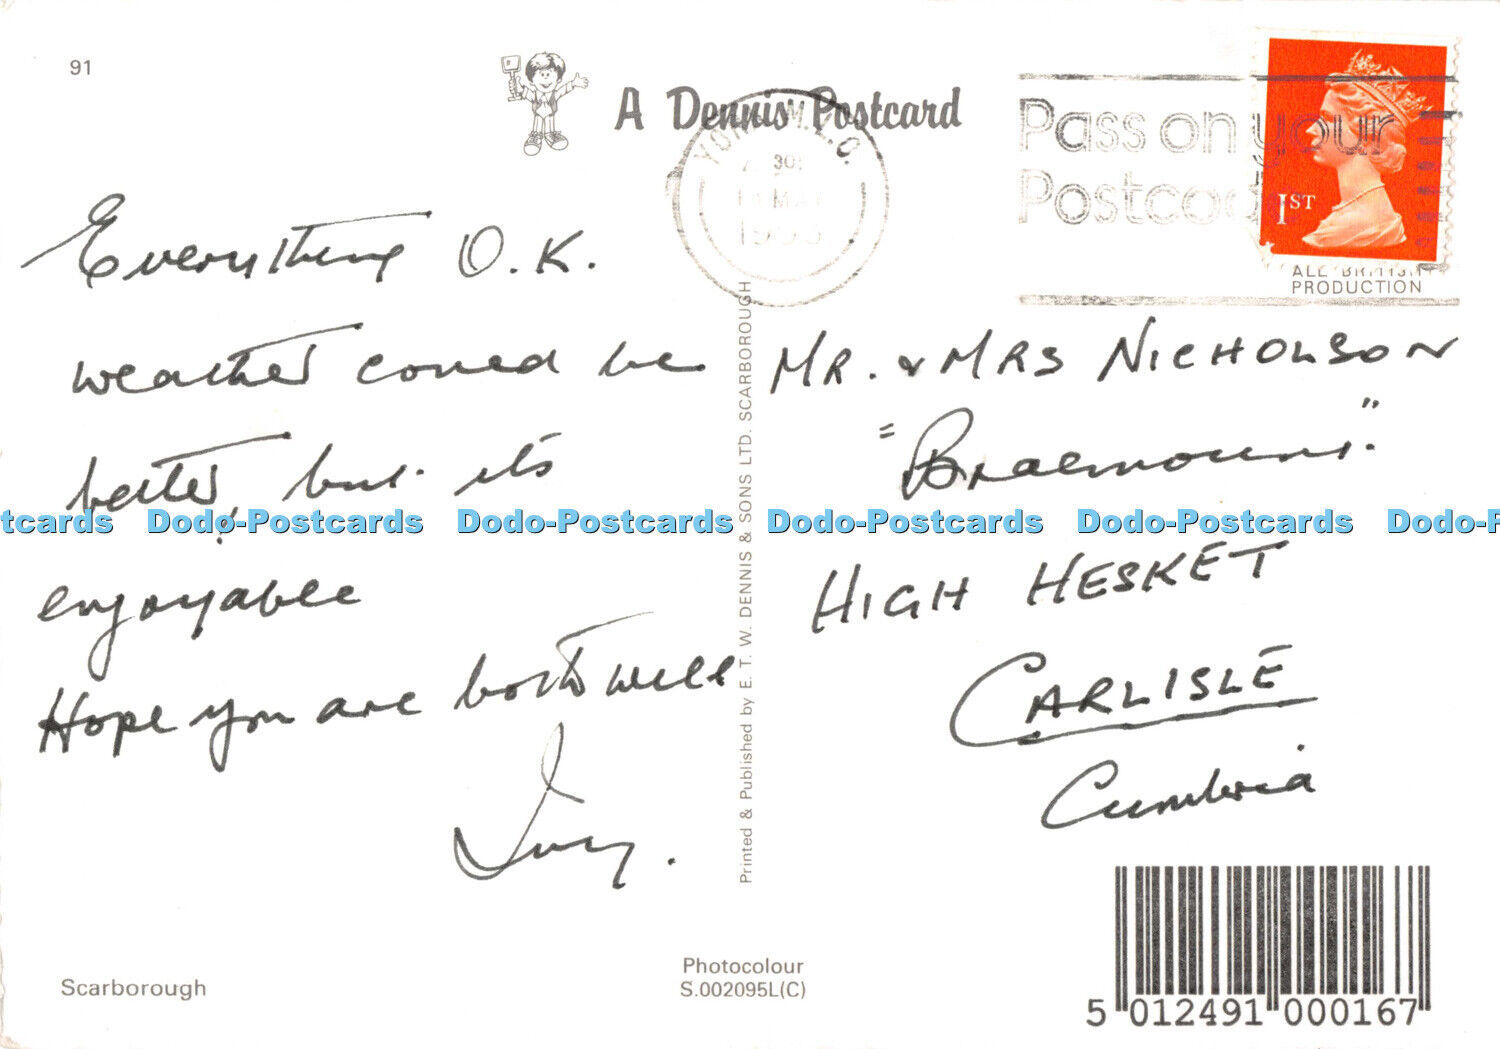 91
A Dennis Postcard
YORK M.L.O.
30
MAY
Pass on your
Postcod
1ST
ALL BRITISH
PRODUCTION
Everything O.K.
weather could be
better, but it's
enjoyable
Hope you are both well
Ivy.
MR. & MRS NICHOLSON
"Braemount."
HIGH HESKET
CARLISLE
Cumbria
Printed & Published by E. T. W. DENNIS & SONS LTD. SCARBOROUGH
tcards Dodo-Postcards Dodo-Postcards Dodo-Postcards Dodo-Postcards Dodo-P
Scarborough
Photocolour
S.002095L(C)
5 012491 000167